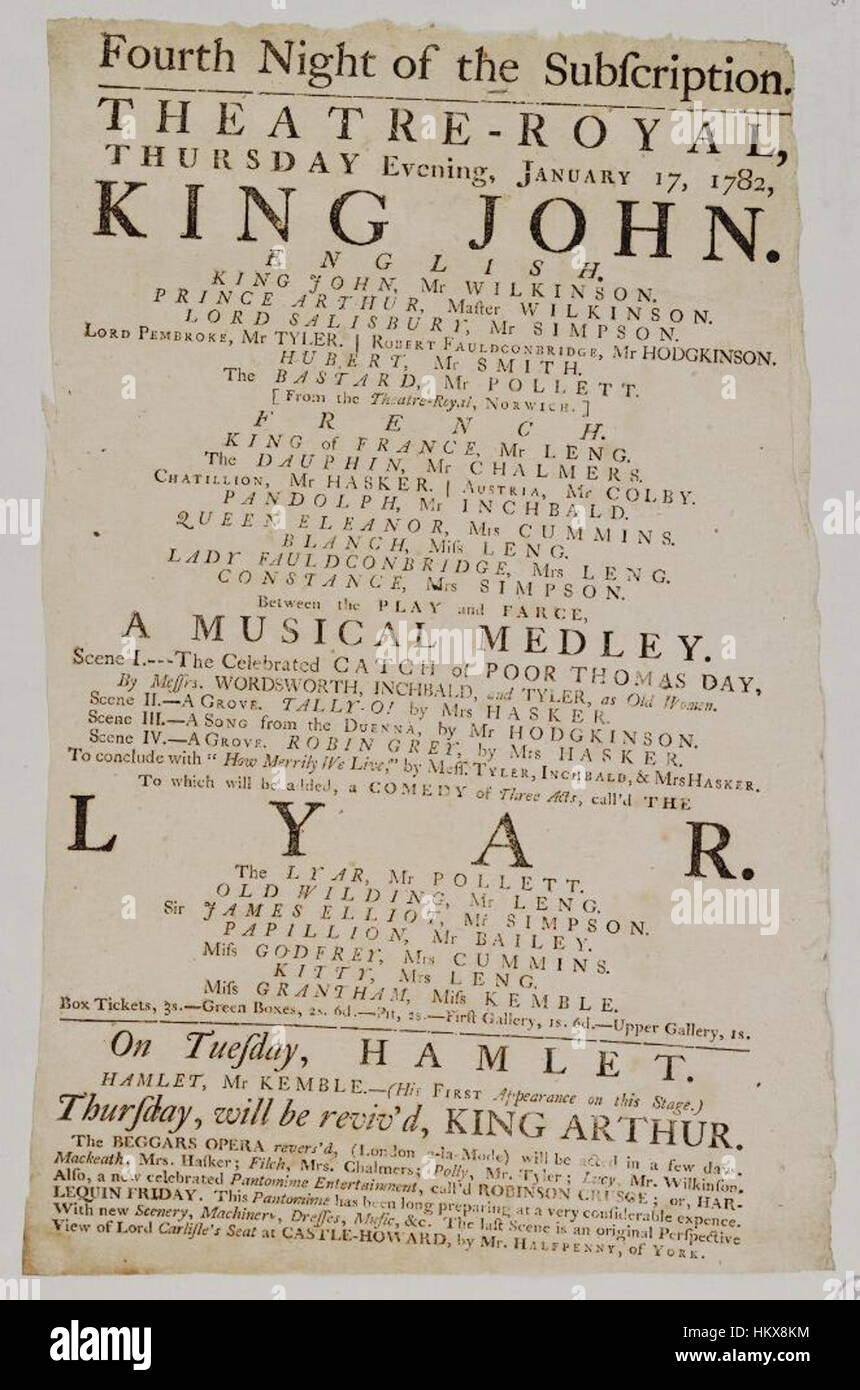 Fourth Night of the Subſcription.
THEATRE-ROYAL,
THURSDAY Evening, JANUARY 17, 1782,
KING JOHN.
ENGLISH.
KING JOHN, Mr WILKINSON.
PRINCE ARTHUR, Maſter WILKINSON.
LORD SALISBURY, Mr SIMPSON.
LORD PEMBROKE, Mr TYLER. | ROBERT FAULDCONBRIDGE, Mr HODGKINSON.
HUBERT, Mr SMITH.
The BASTARD, Mr POLLETT.
[From the Theatre-Royal, NORWICH.]
FRENCH.
KING of FRANCE, Mr LENG.
The DAUPHIN, Mr CHALMERS.
CHATILLION, Mr HASKER. | AUSTRIA, Mr COLBY.
PANDOLPH, Mr INCHBALD.
QUEEN ELEANOR, Mrs CUMMINS.
BLANCH, Miſs LENG.
LADY FAULDCONBRIDGE, Mrs LENG.
CONSTANCE, Mrs SIMPSON.
Between the PLAY and FARCE,
A MUSICAL MEDLEY.
Scene I.---The Celebrated CATCH of POOR THOMAS DAY,
By Meſſrs. WORDSWORTH, INCHBALD, and TYLER, as Old Women.
Scene II.—A GROVE. TALLY-O! by Mrs HASKER.
Scene III.—A SONG from the DUENNA, by Mr HODGKINSON.
Scene IV.—A GROVE. ROBIN GREY, by Mrs HASKER.
To conclude with "How Merrily We Live," by Meſſ. TYLER, INCHBALD, & Mrs HASKER.
To which will be added, a COMEDY of Three Acts, call'd THE
LYAR.
The LYAR, Mr POLLETT.
OLD WILDING, Mr LENG.
Sir JAMES ELLIOT, Mr SIMPSON.
PAPILLION, Mr BAILEY.
Miſs GODFREY, Mrs CUMMINS.
KITTY, Mrs LENG.
Miſs GRANTHAM, Miſs KEMBLE.
Box Tickets, 3s.—Green Boxes, 2s. 6d.—Pit, 2s.—Firſt Gallery, 1s. 6d.—Upper Gallery, 1s.
On Tueſday, HAMLET.
HAMLET, Mr KEMBLE.—(His FIRST Appearance on this Stage.)
Thurſday, will be reviv'd, KING ARTHUR.
The BEGGARS OPERA revers'd, (London a-la-Mode) will be acted in a few days.
Mackeath, Mrs. Haſker; Filch, Mrs. Chalmers; Polly, Mr. Tyler; Lucy, Mr. Wilkinſon.
Alſo, a new celebrated Pantomime Entertainment, call'd ROBINSON CRUSOE; or, HAR-
LEQUIN FRIDAY. This Pantomime has been long preparing at a very conſiderable expence.
With new Scenery, Machinery, Dreſſes, Muſic, &c. The laſt Scene is an original Perſpective
View of Lord Carliſle's Seat at CASTLE-HOWARD, by Mr. HALFPENNY, of YORK.
alamy
alamy stock photo
HKX8KM
www.alamy.com